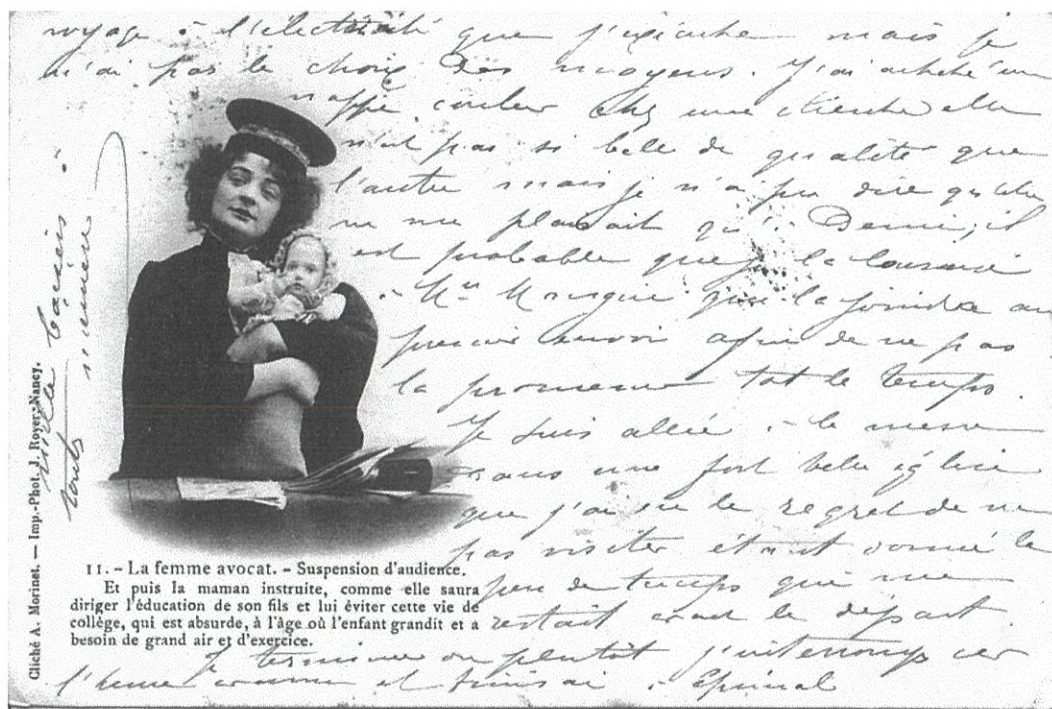 voyage à l'électricité que j'exècre mais je
n'ai pas le choix des moyens. J'ai acheté un
nappé couleur chez une cliente elle
n'est pas si belle de qualité que
l'autre mais je n'ai pu dire qu'elle
ne me plaisait
est probable que je la
à Mme que la joindra au
premier envoi afin de ne pas
la promener tout le temps.
Je suis allée à la messe
dans une fort belle église
que j'ai eu le regret de ne
pas visiter étant donné le
peu de temps qui me
restait avant le départ.
Je termine ou plutôt j'interromps car
l'heure avance et finirai à Epinal
mille baisers à
tous
11. - La femme avocat. - Suspension d'audience.
Et puis la maman instruite, comme elle saura
diriger l'éducation de son fils et lui éviter cette vie de
collège, qui est absurde, à l'âge où l'enfant grandit et a
besoin de grand air et d'exercice.
Cliché A. Morinet. — Imp.-Phot. J. Royer, Nancy.